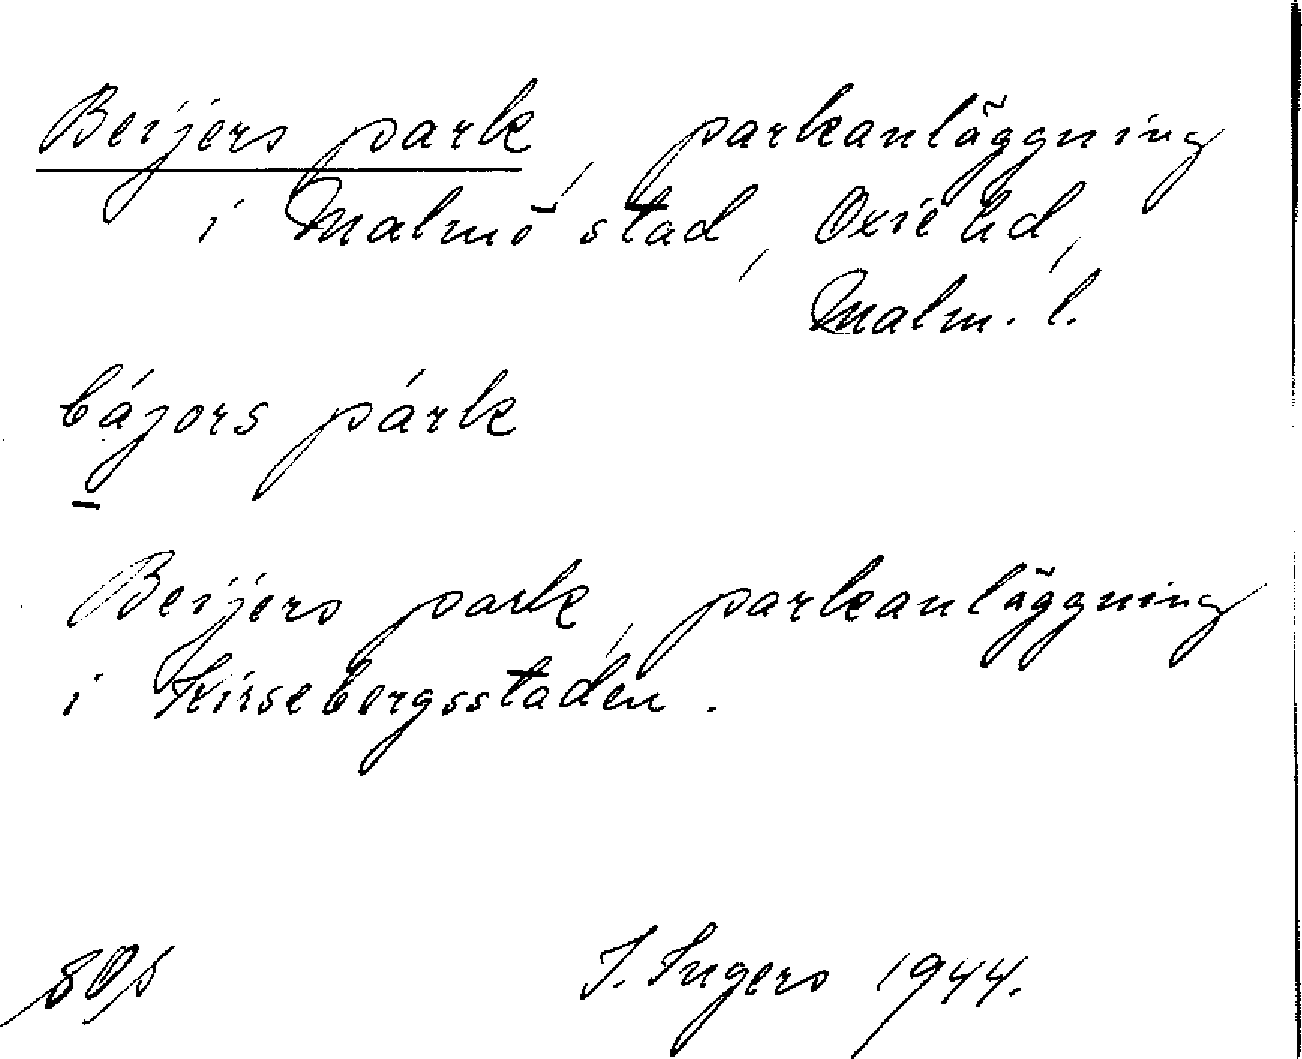 Beijers park, parkanläggning
i Malmö stad, Oxie hd,
Malm. l.
bájors párk
Beijers park, parkanläggning
i Kirsebergsstaden.
I. Ingers 1944.